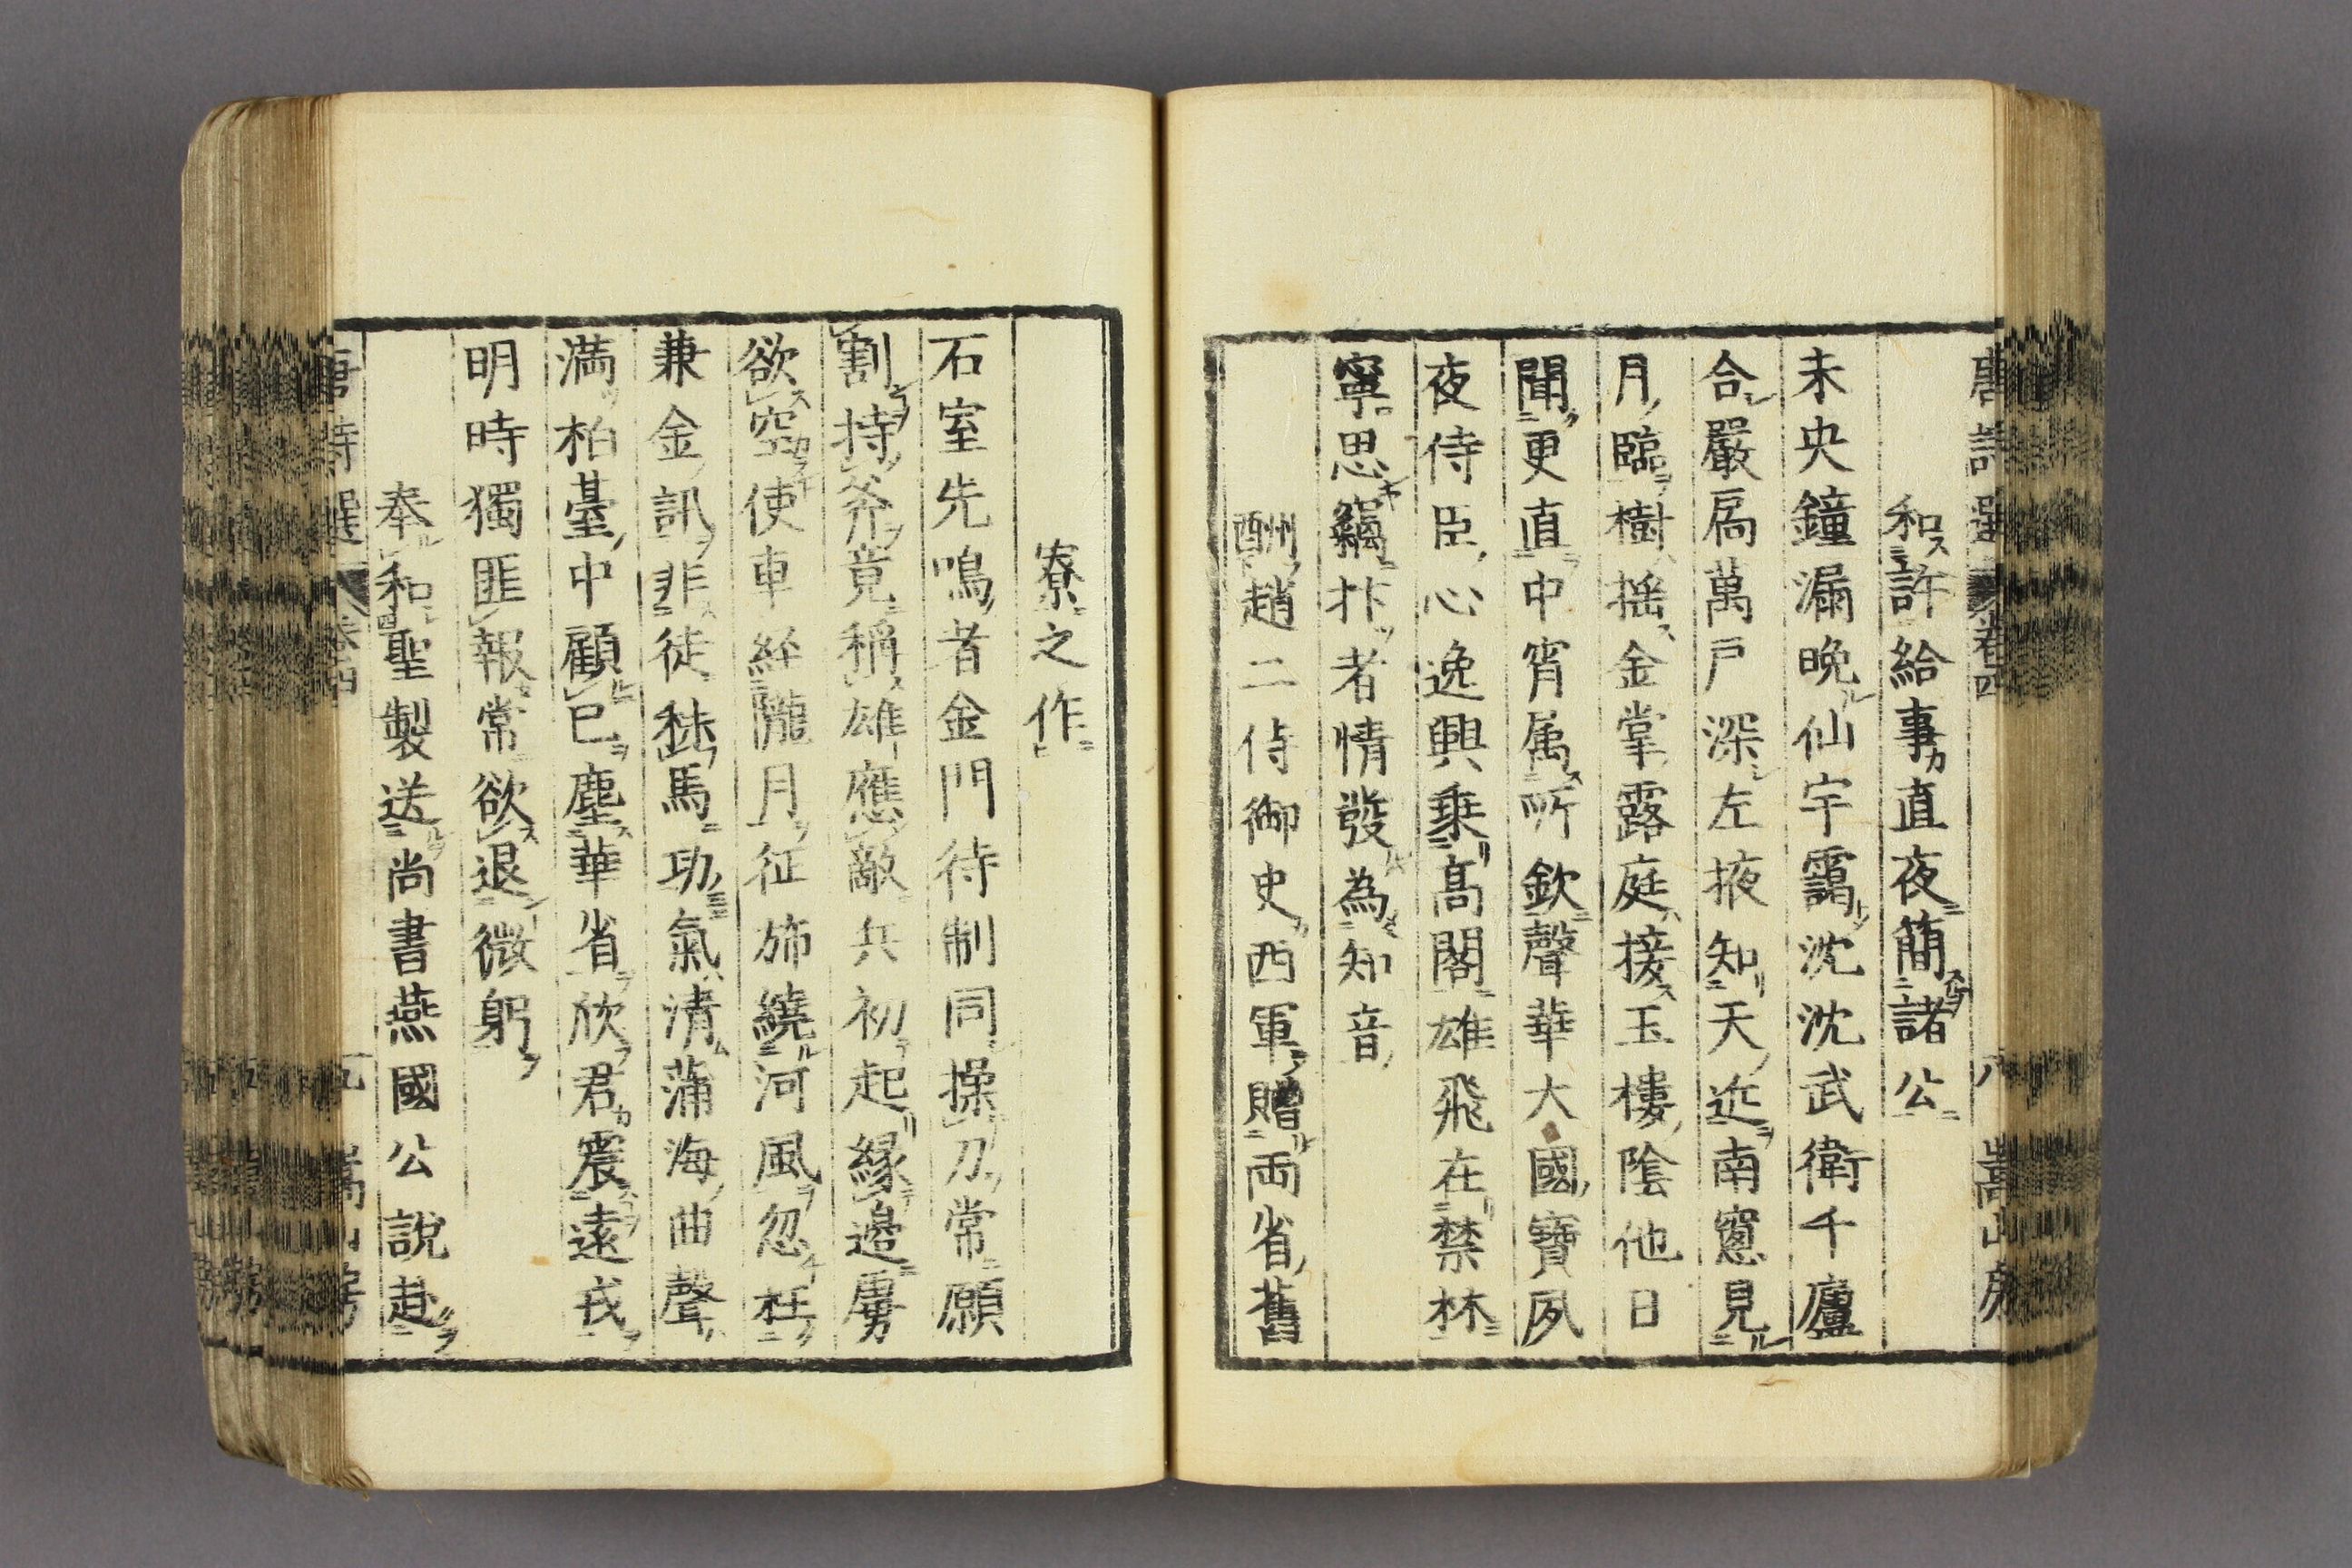 和許給事直夜簡諸公
未央鐘漏晩仙宇靄沈沈武衛千廬
合嚴扃萬戸深左掖知天近南窻見
月臨樹揺金掌露庭接玉樓陰他日
聞更直中宵属所欽聲華大國寶夙
夜侍臣心逸興乗髙閣雄飛在禁林
寧思竊抃者情發為知音
酬趙二侍御史西軍贈両省舊
寮之作
石室先鳴者金門待制同操刀常願
割持斧竟稱雄應敵兵初起縁邉虜
欲空使車經隴月征斾繞河風忽枉
兼金訊非徒秣馬功氣清蒲海曲聲
満柏臺中顧己塵華省欣君震遠戎
明時獨匪報常欲退微躬
奉和聖製送尚書燕國公說赴